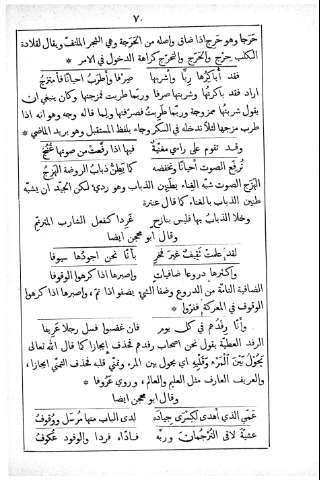 ٧٠
حَرَجا وهو حَرِج اذا ضاق واصله من الحَرَجة وهي الشجر الملتف ويقال لقلادة
الكلب حِرْج والحَرَج والتحرّج كراهة الدخول في الامر *
فقد أُباكرُها رِيًّا وأشربها صِرْفا وأَطرَبُ احيانًا فأمتزجُ
اراد فقد باكرتُها وشربتها صرفا وربّما طربت فمزجتها وكان ينبغي ان
يقول شربتُها ممزوجة وربّما طَرِبتُ فصرفتها ولِما قاله وجه وهو انه اذا
طرب مزجها لئلّا تدخله في السكر وجاء بلفظ المستقبل وهو يريد الماضي *
وقد تقوم على راسي مغنّيةٌ فيها اذا رفَّعت من صوتها غُنُجُ
تُرفّع الصوت أحيانًا وتخفضه كما يَطِنُّ ذباب الروضة الهَزِجُ
الهَزج الصوت شبّه الغناء بطنين الذباب وهو ردئ لكن الجيّد ان يشبّه
طنين الذباب بالغناء كما قال عنترة
وخلا الذبابُ بها فليس ببارحٍ غَرِدا كفعل الشارب المترنّم
وقال ابو محجن ايضا
لقد علمت ثقيفٌ غيرَ فخرٍ بأنّا نحن اجودُها سيوفا
وأكثرُها دروعا ضافياتٍ وأصبرها اذا كرهوا الوقوفا
الضافية التامّة من الدروع وضفا الشيُ يضفو اذا تمّ ، وأصبرها اذا كرهوا
الوقوف في المعركة ففرّوا *
وأنّا رِفدُهم في كل يومٍ فان غضبوا فسل رجلا عَرِيفا
الرفد العطيّة يقول نحن اصحاب رفدهم فحذف إيجازا كما قال الله تعالى
يَحُولُ بَيْنَ ٱلْمَرْءِ وَقَلْبِهِ اي يحول بين المرء وتمنّي قلبه فحذف التمنّي ايجازا ،
والعريف العارف مثل العليم والعالم ، وروي عَرُوفا *
وقال ابو محجن ايضا
عَمِّي الذي أهدى لكسرى جِيادَه لدى الباب منها مُرسَل ووُقوفُ
عشيّةَ لاقى التُّرجُمانَ وربَّه فأدّاه فردا والوفود عُكوفُ